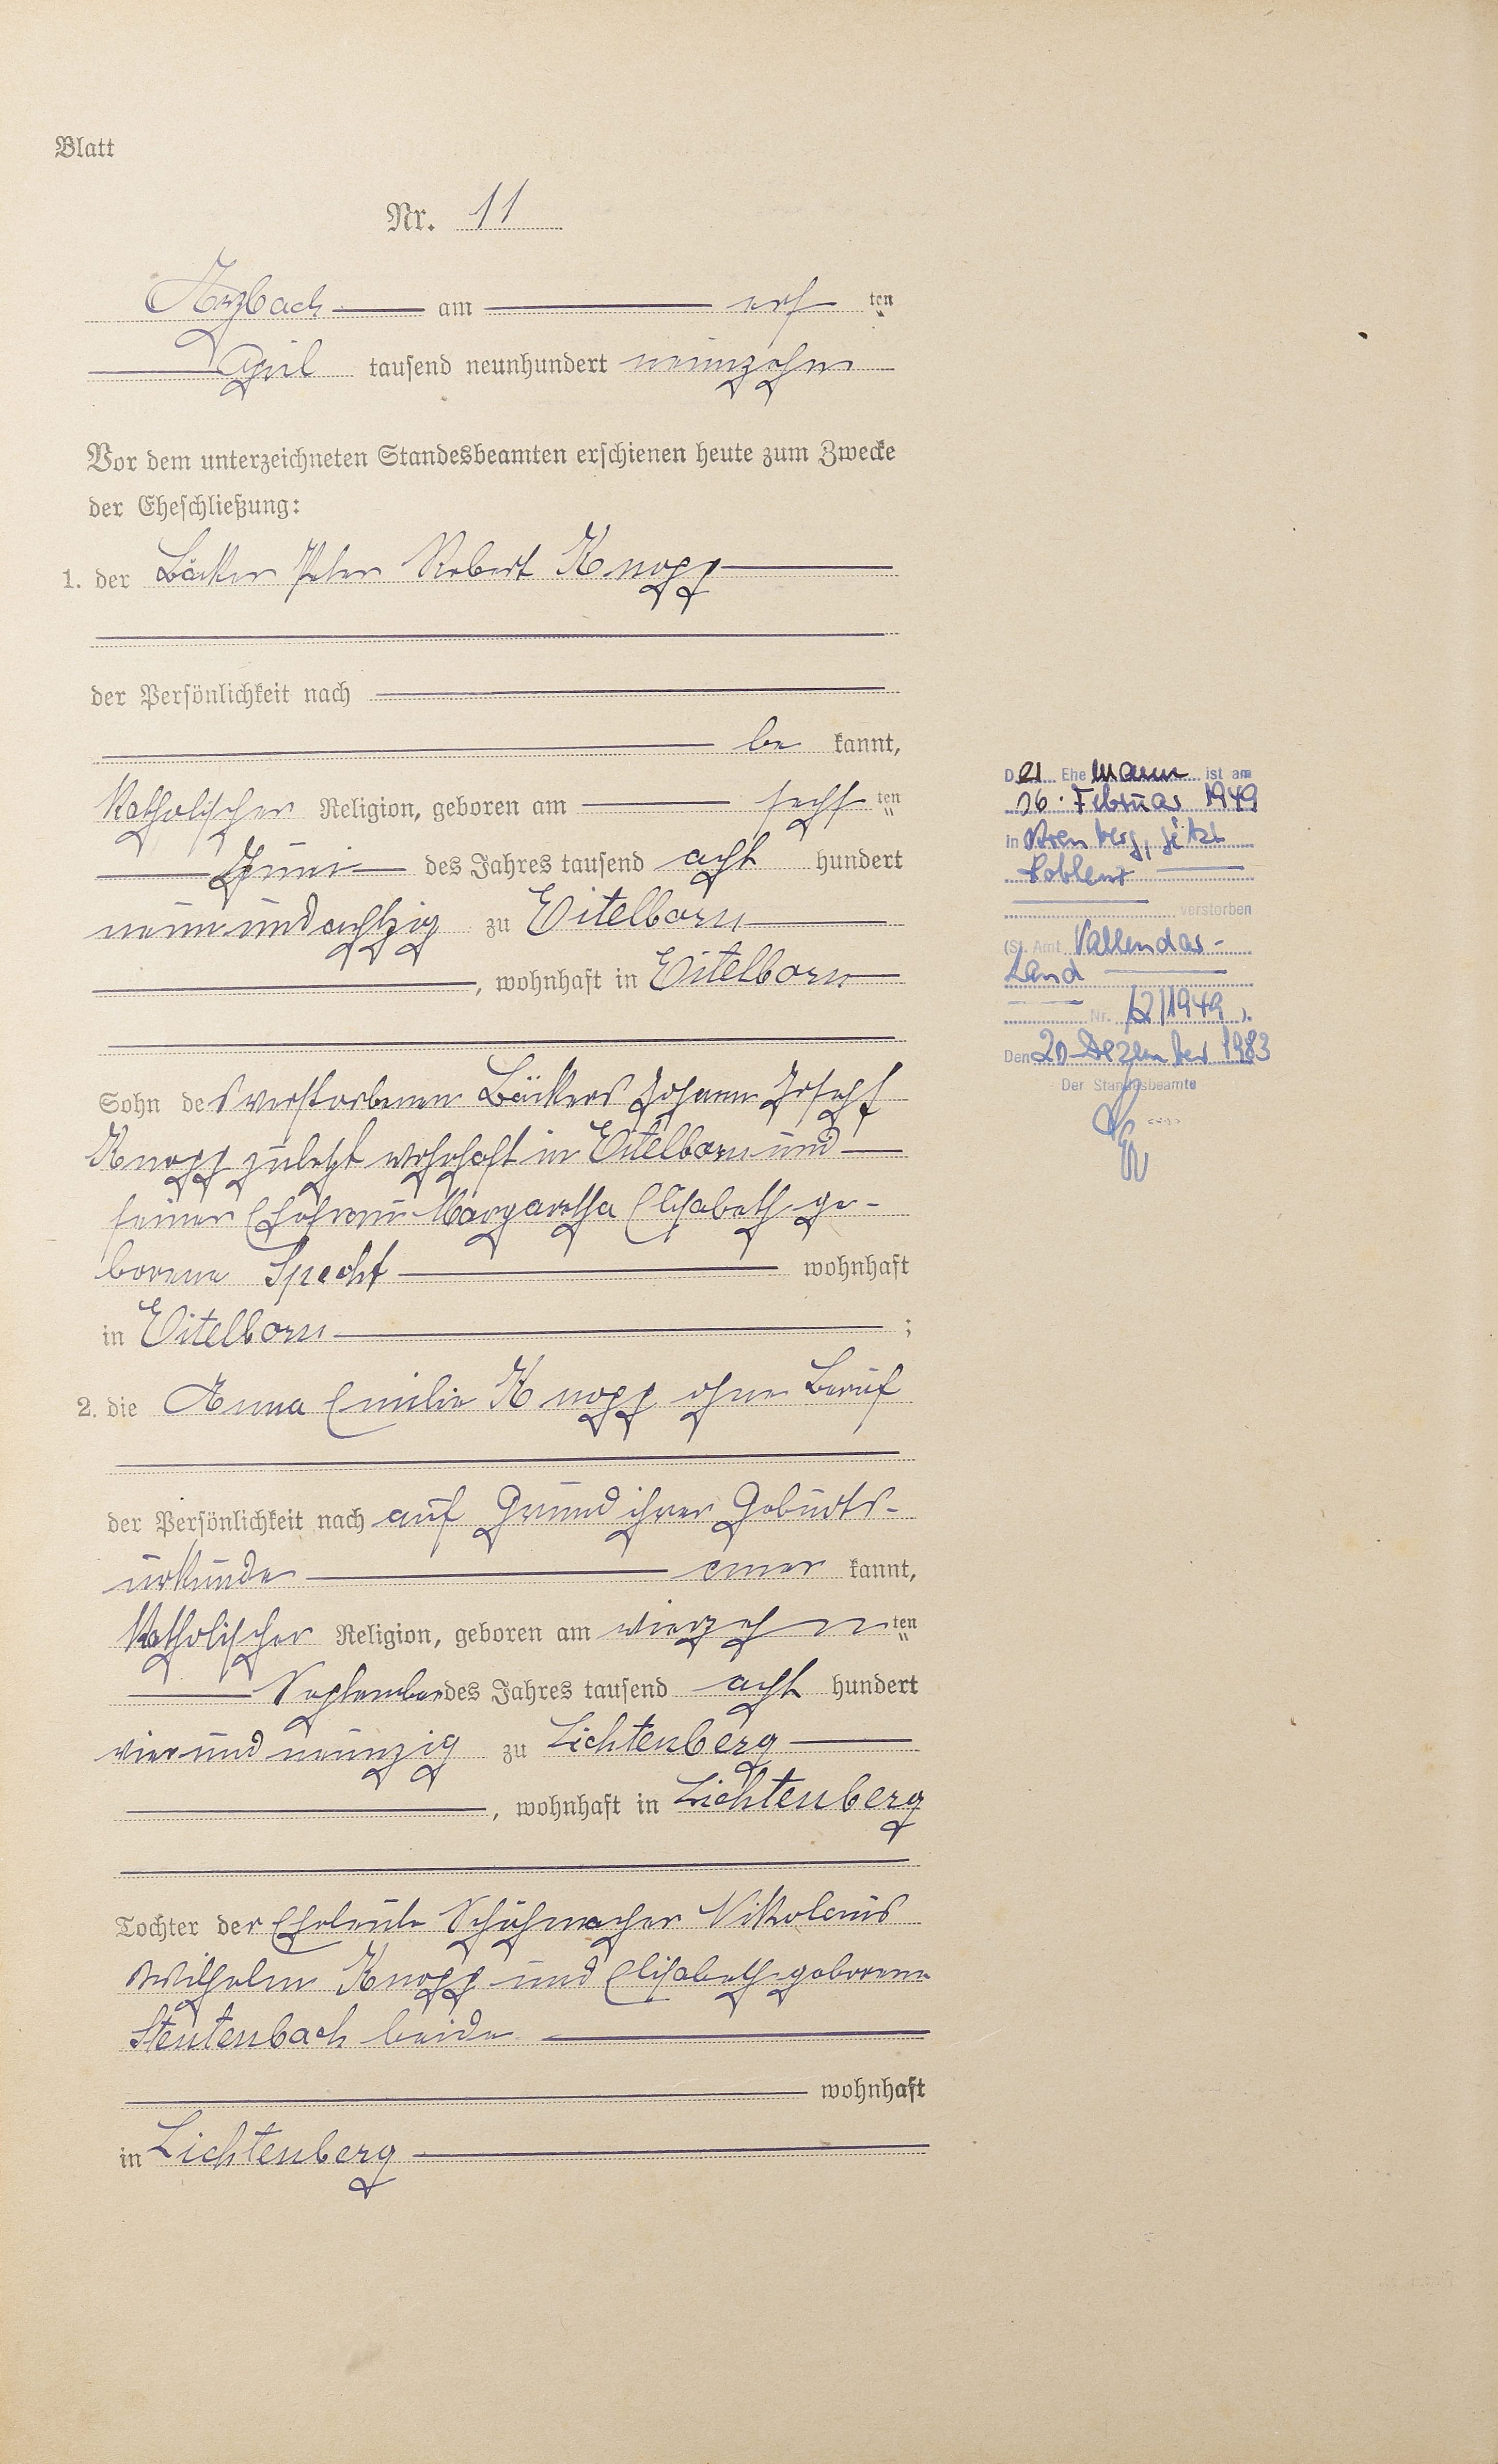 Blatt
Nr. 11
Arzbach am ten
April tausend neunhundert neunzehn
Vor dem unterzeichneten Standesbeamten erschienen heute zum Zwecke
der Eheschließung:
1. der Bäcker Peter Robert Knopp
der Persönlichkeit nach
be kannt,
Katholischer Religion, geboren am sechs ten
Juni des Jahres tausend acht hundert
neun und achtzig zu Eitelborn
, wohnhaft in Eitelborn
Sohn des verstorbenen Bäckers Johann Joseph
Knopp zuletzt wohnhaft in Eitelborn und
seiner Ehefrau Margaretha Elisabeth ge-
borene Specht wohnhaft
in Eitelborn ;
2. die Anna Emilie Knopp ohne Beruf
der Persönlichkeit nach auf Grund ihrer Geburts-
urkunde aner kannt,
Katholischer Religion, geboren am vierzehn ten
September des Jahres tausend acht hundert
vier und neunzig zu Lichtenberg
, wohnhaft in Lichtenberg
Tochter der Eheleute Schuhmacher Nikolaus
Wilhelm Knopp und Elisabeth geborene
Steutenbach beide
wohnhaft
in Lichtenberg
Der Ehemann ist am
16. Februar 1949
in Arenberg, jetzt
Koblenz
verstorben
(St. Amt Vallendar-
Land
Nr. 12/1949).
Den 20. Dezember 1983
Der Standesbeamte